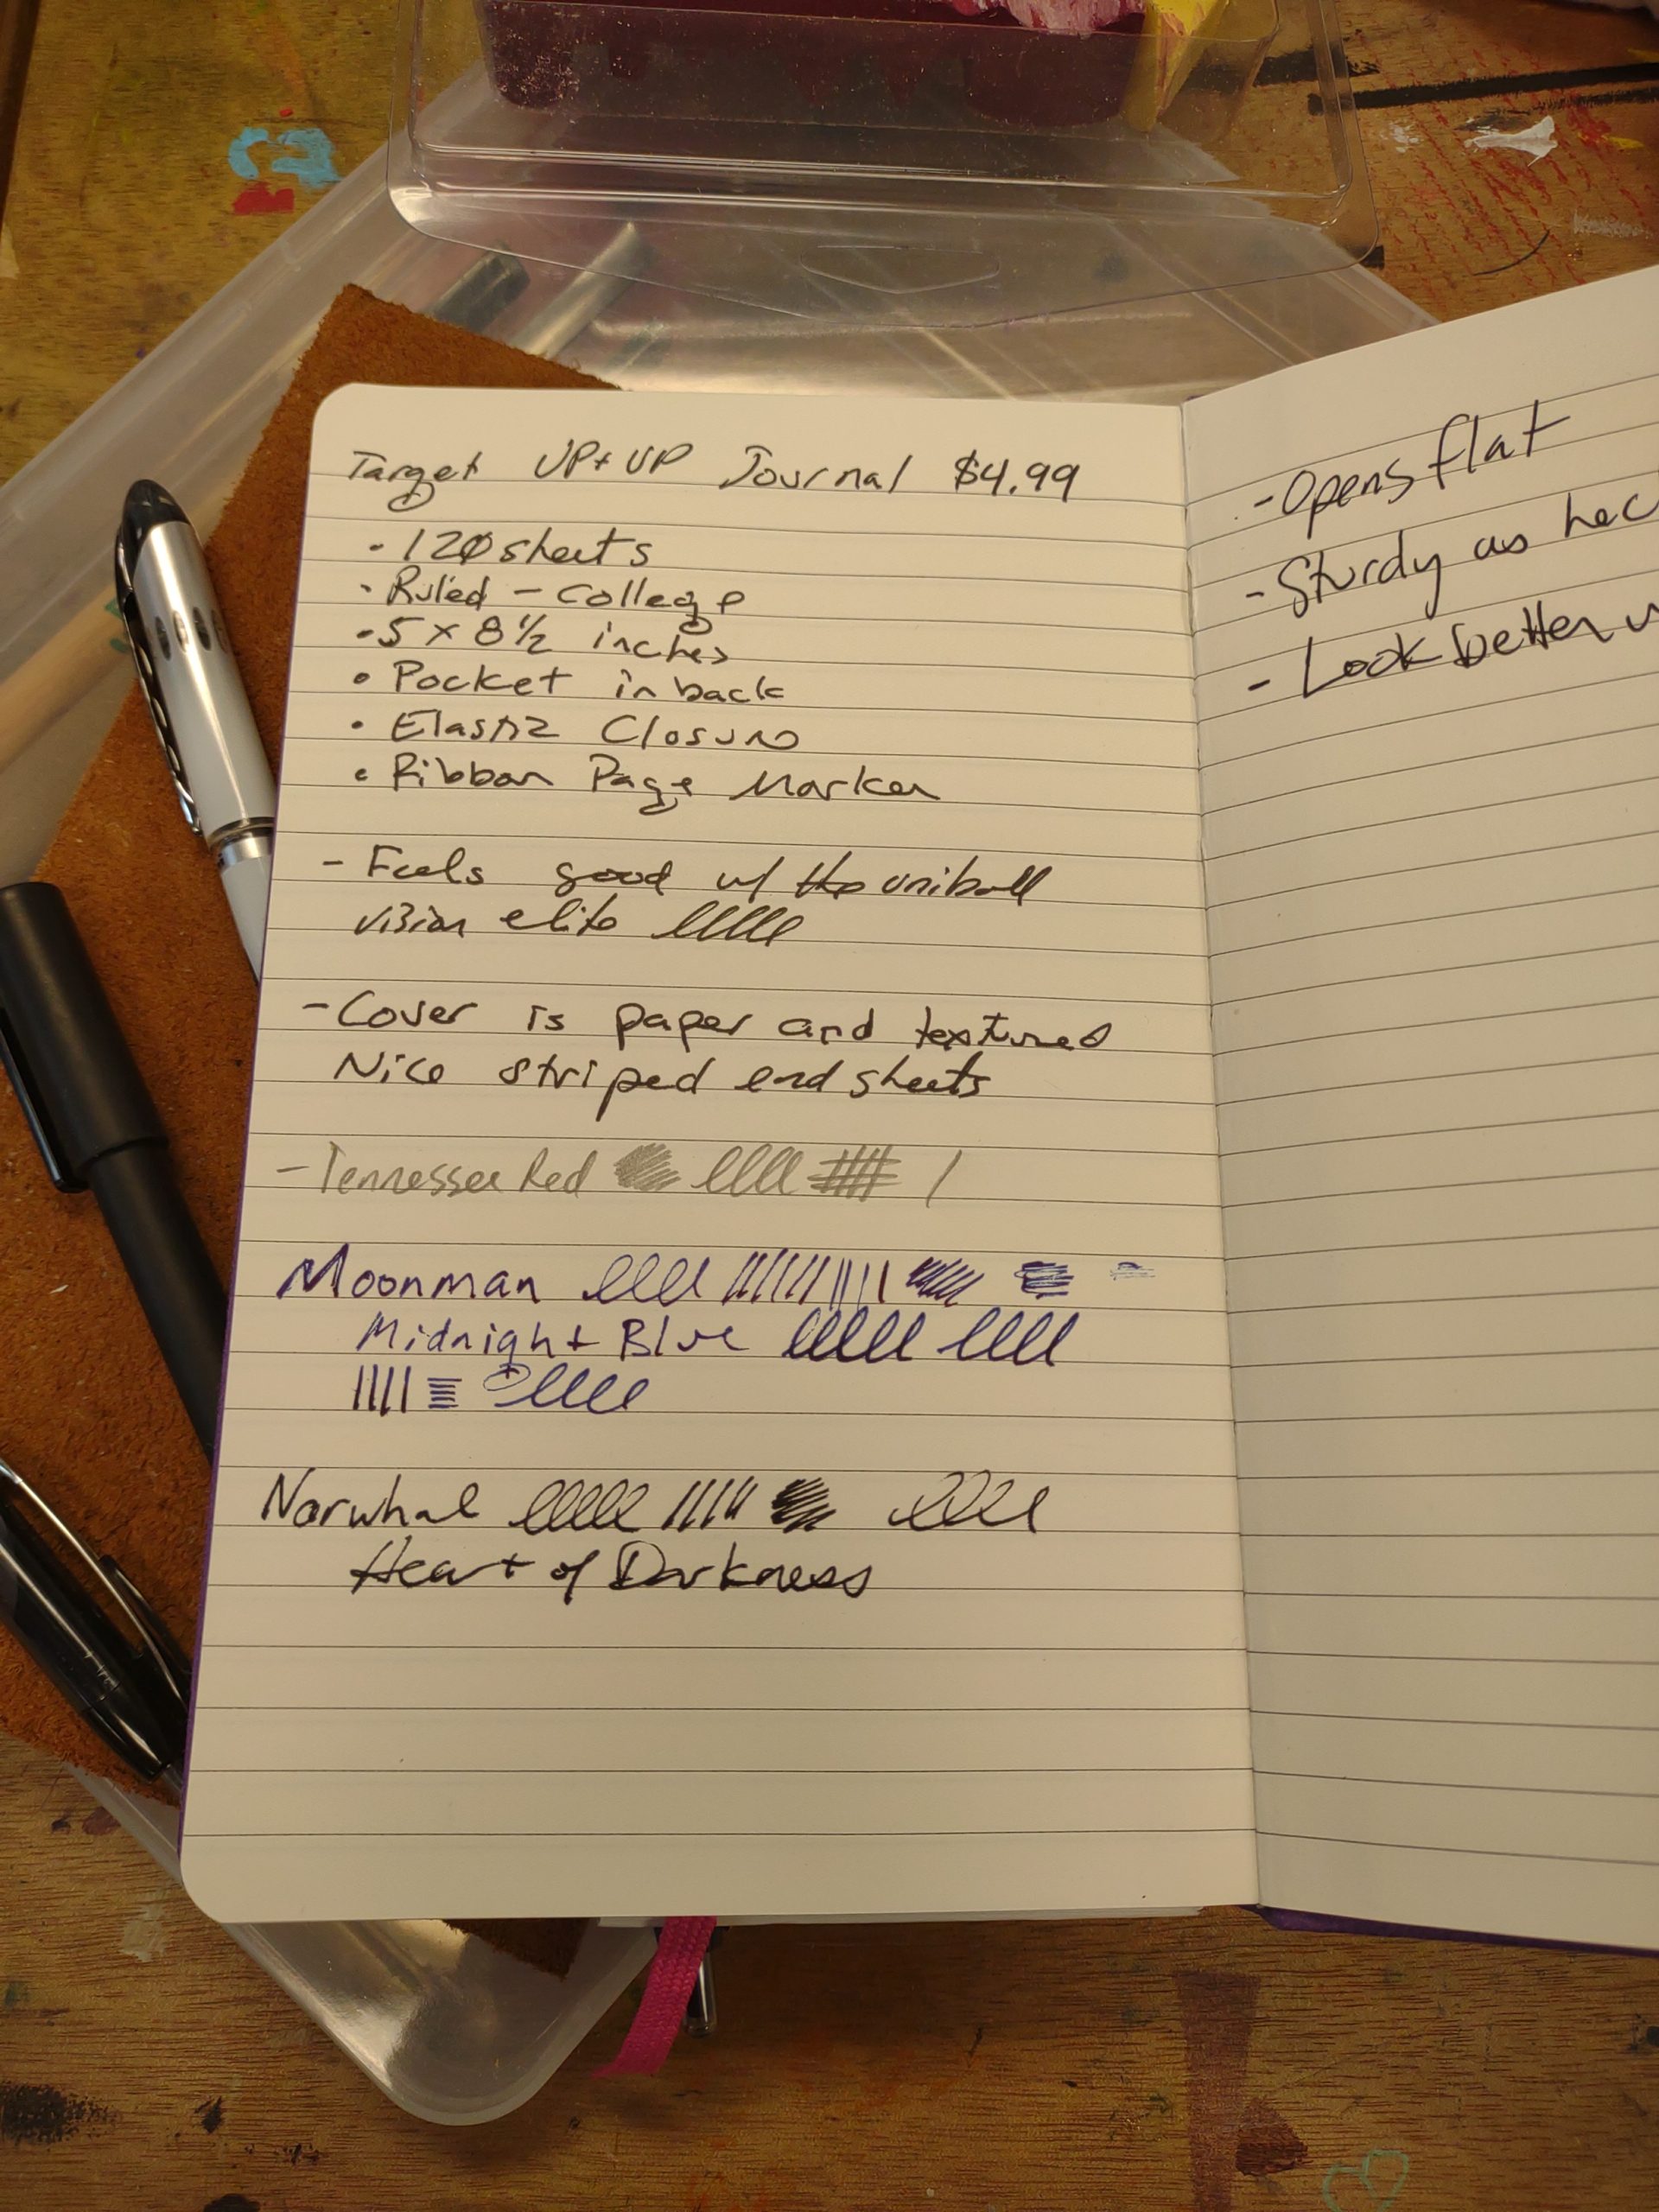 Target UP+UP Journal $4.99
• 120 sheets
• Ruled - College
• 5 x 8 1/2 inches
• Pocket in back
• Elastic Closure
• Ribbon Page Marker
- Feels good w/ the uniball
vision elite
- Cover is paper and textured
Nice striped end sheets
- Tennessee Red
Moonman
Midnight Blue
Narwhal
Heart of Darkness
- Opens flat
- Sturdy as hec
- Look better